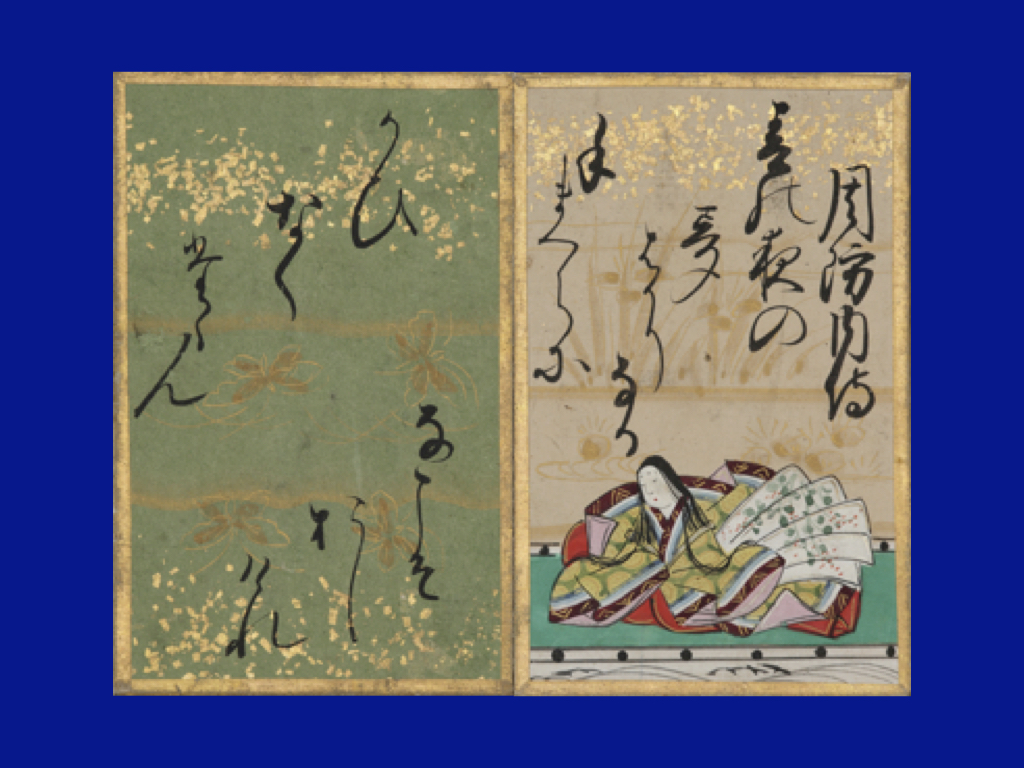 周防内侍
春の夜の
夢
はかり
なる
手
まくらに
かひ
なく
たゝん
なこそ
おし
けれ